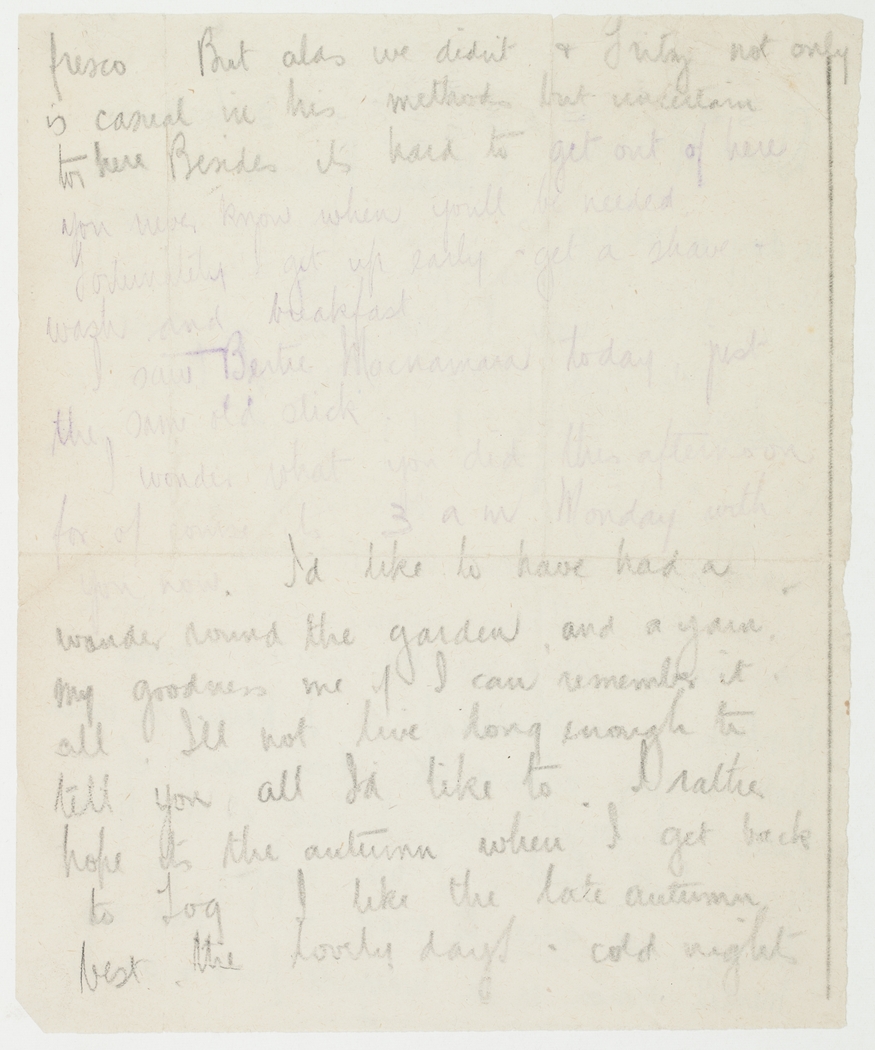 fresco But alas we didn't & Fritz not only
is casual in his methods but uncertain
too here Besides its hard to get out of here
you never know when you'll be needed
Fortunately I get up early - get a shave &
wash and breakfast
I saw Bertie Macnamara today, just
the same old stick
I wonder what you did this afternoon
for of course its 3 a m Monday with
you now. I'd like to have had a
wander round the garden, and a yarn.
My goodness me if I can remember it
all I'll not live long enough to
tell you all I'd like to. I rather
hope its the autumn when I get back
to Log I like the late autumn
best. the lovely days & cold nights